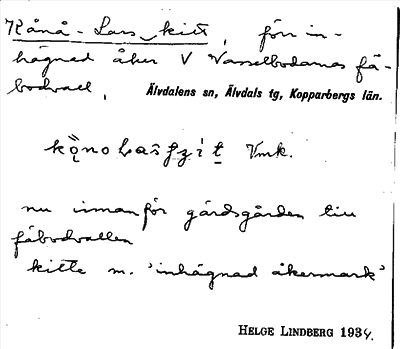 Rånå-Lars kitt, förr in-
hägnad åker V Vasselbodarnas fä-
bodvall, Älvdalens sn, Älvdals tg, Kopparbergs län.
Vmk.
nu innanför gärdsgården till
fäbodvallen
kitte m. 'inhägnad åkermark'
HELGE LINDBERG 1934.